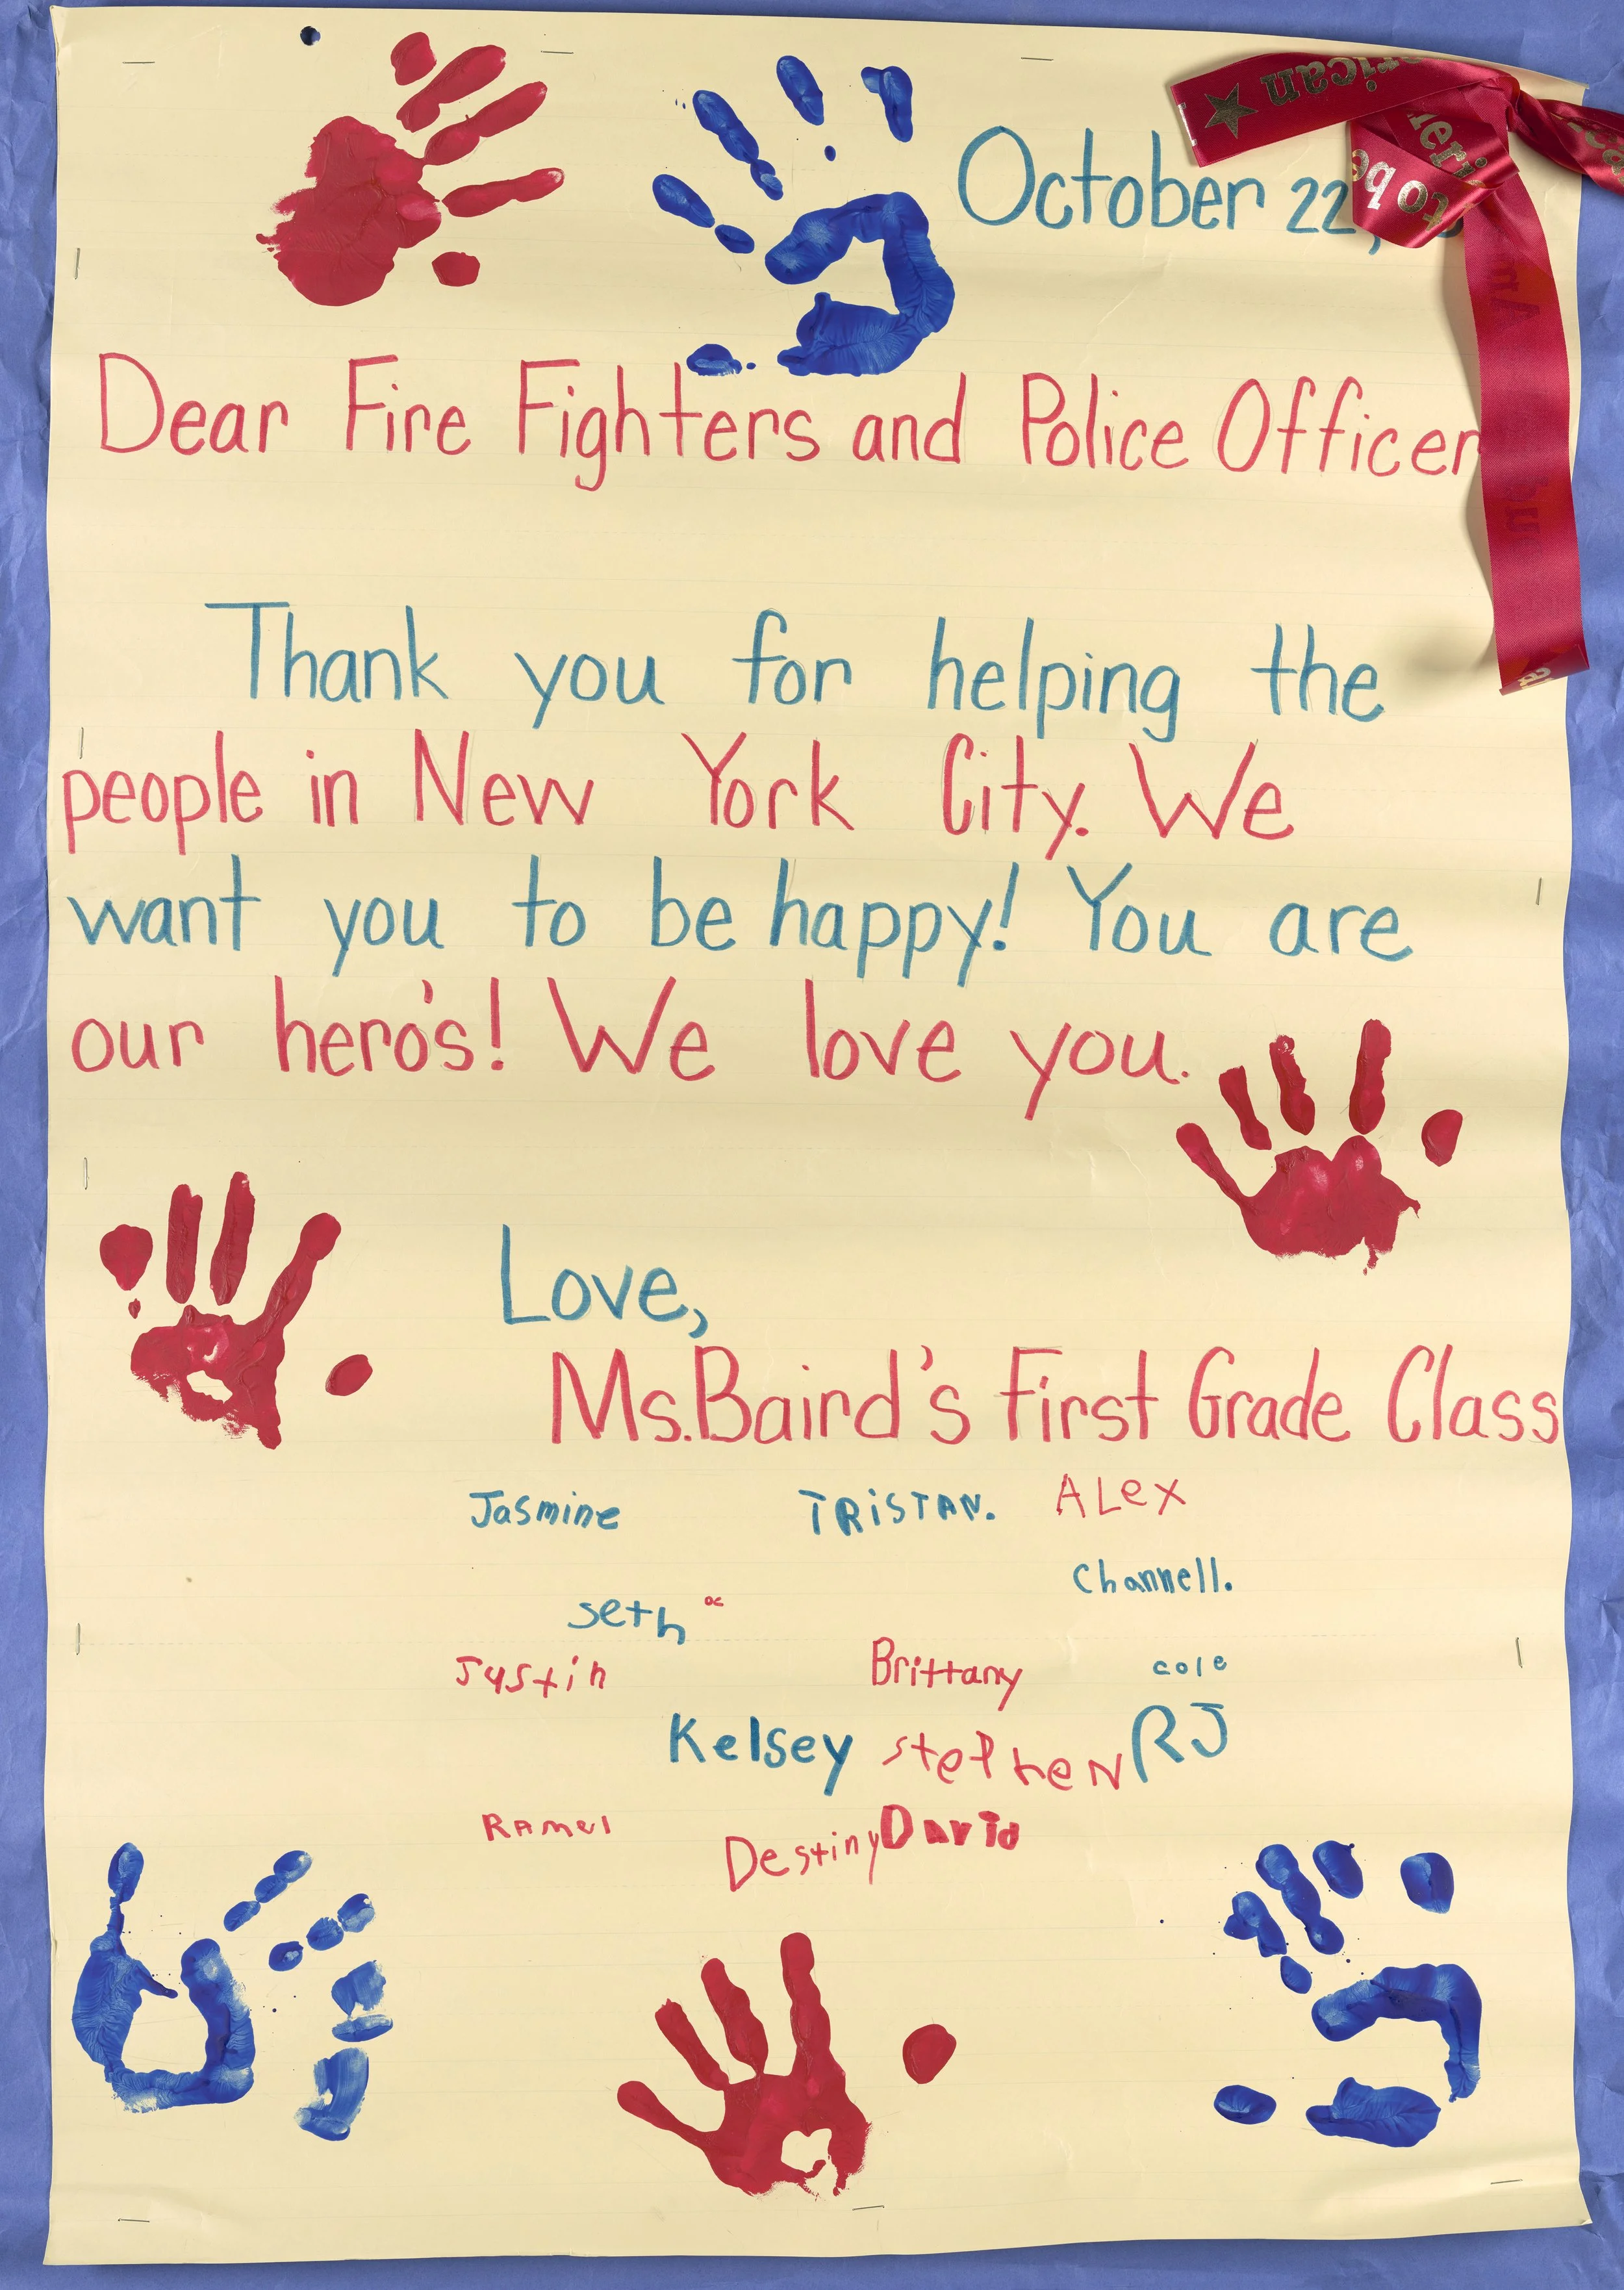 October 22,
Dear Fire Fighters and Police Officer
Thank you for helping the
people in New York City. We
want you to be happy! You are
our hero's! We love you.
Love,
Ms.Baird's First Grade Class
Jasmine TRiSTAN. ALex
Channell.
seth
Justin Brittany cole
Kelsey stephen RJ
Ramel Destiny David
to be